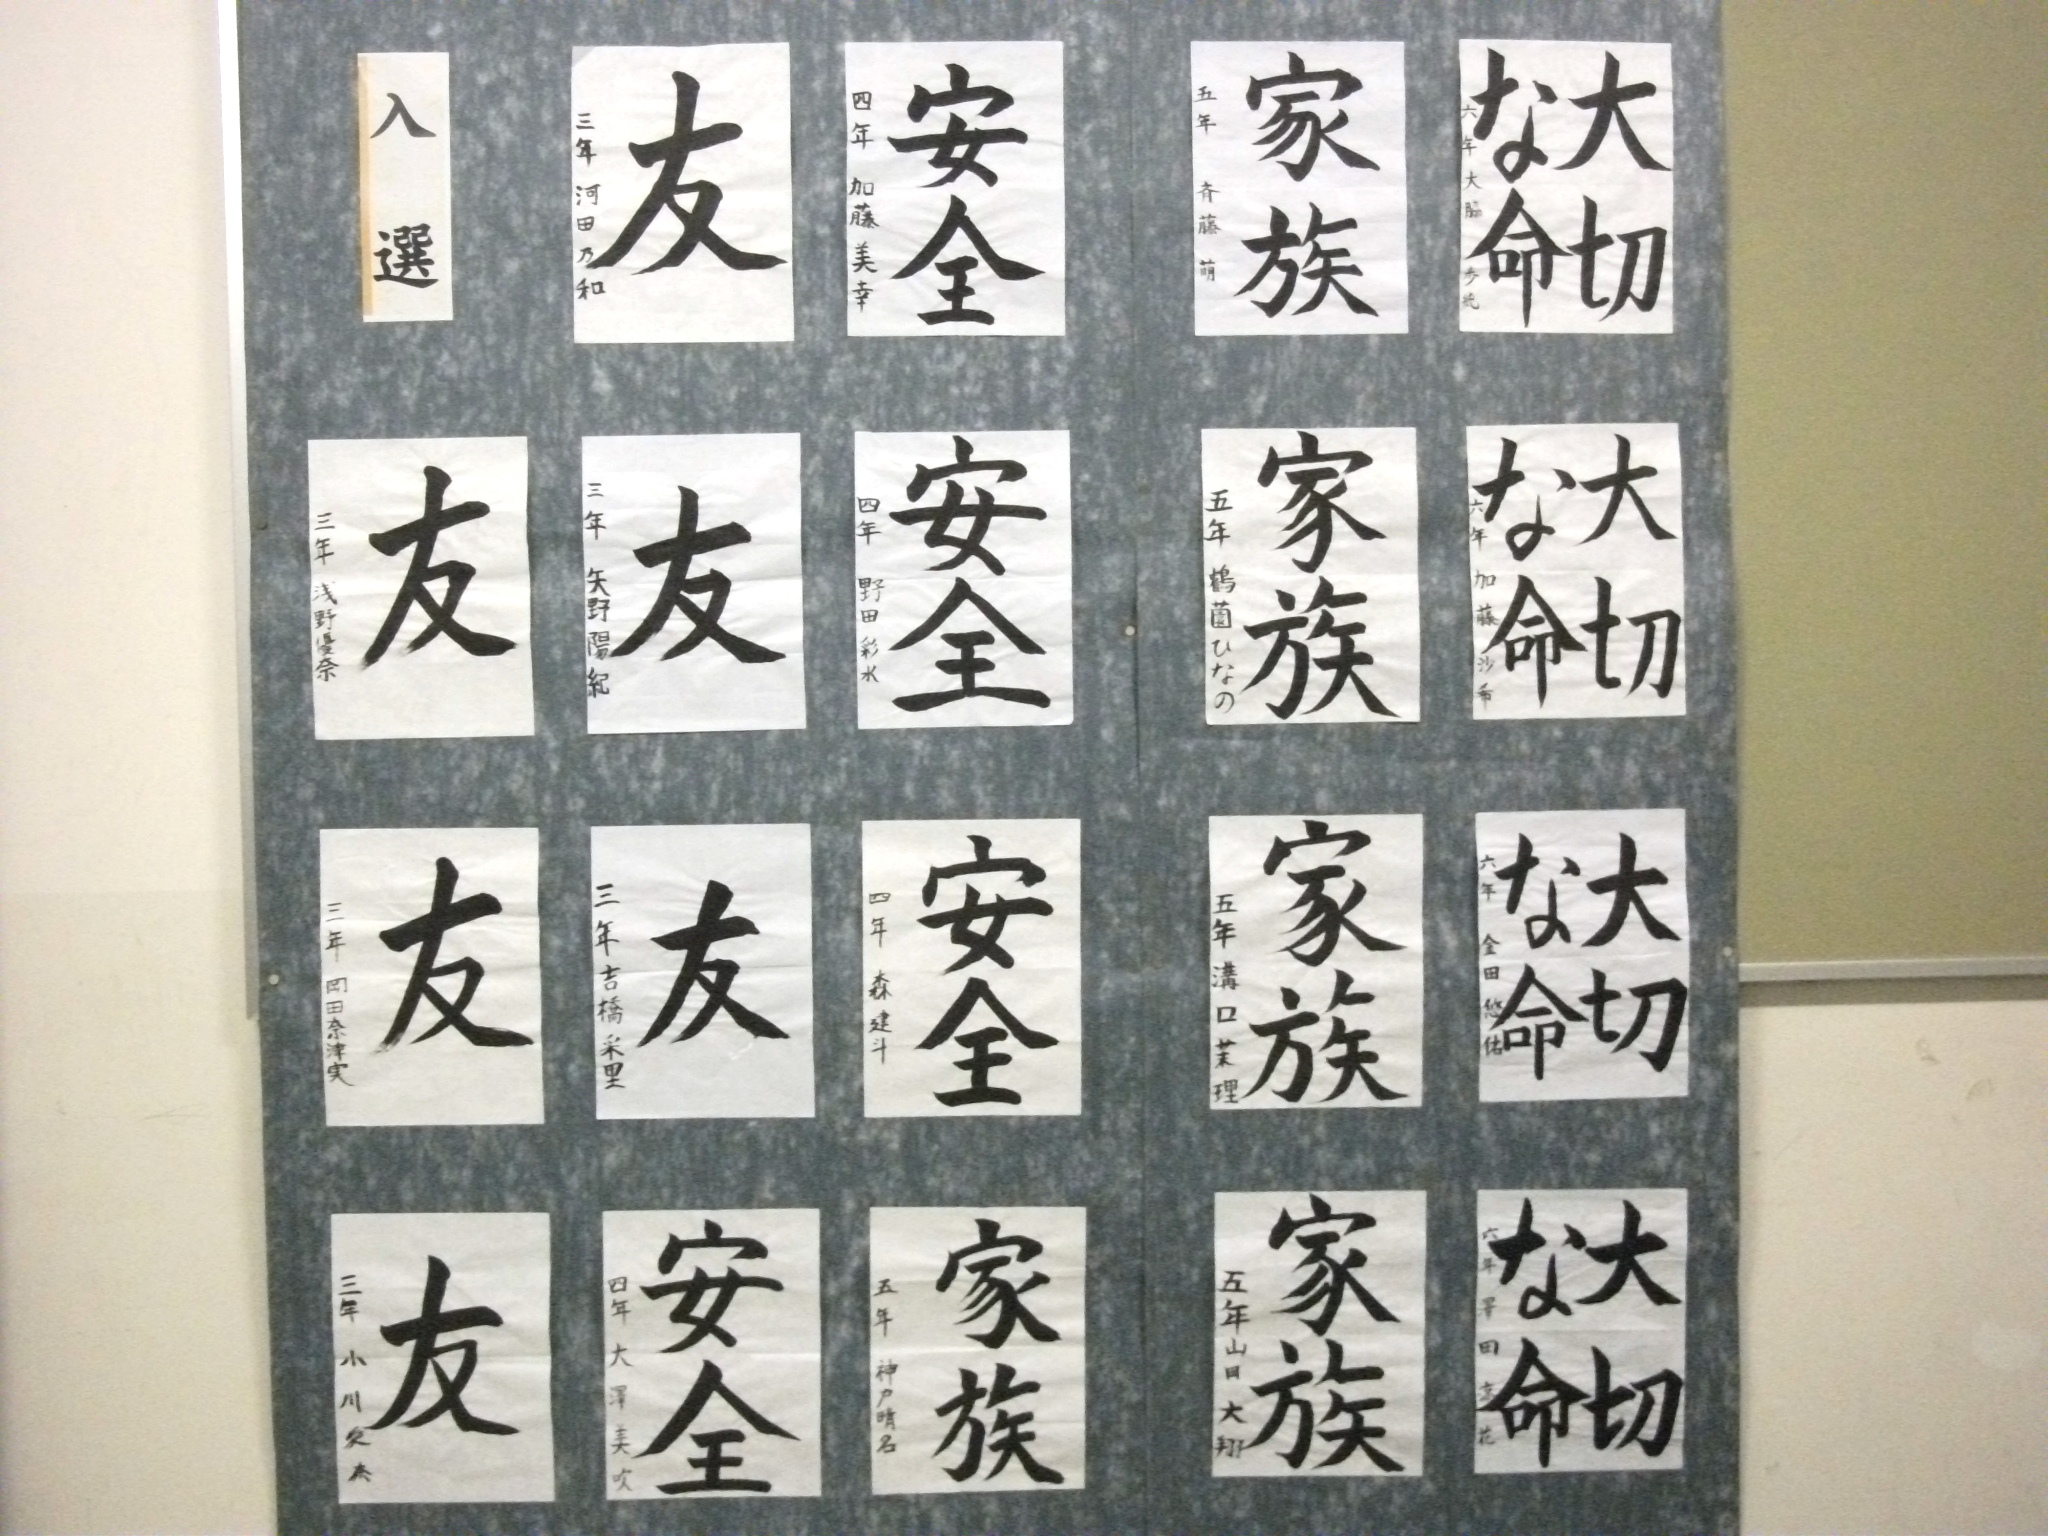 大切
な命
六年 大脇
大切
な命
六年 加藤 沙希
大切
な命
六年 金田 悠佑
大切
な命
六年
田
花
家族
五年 斉藤 萌
家族
五年 鶴薗ひなの
家族
五年 溝口茉理
家族
五年 山田 大翔
安全
四年 加藤美幸
安全
四年 野田彩水
安全
四年 森 建斗
家族
五年 神戸晴名
友
三年 河田乃和
友
三年 矢野陽紀
友
三年 吉橋采里
安全
四年 大澤美吹
入選
友
三年 浅野優奈
友
三年 岡田奈津実
友
三年 小川